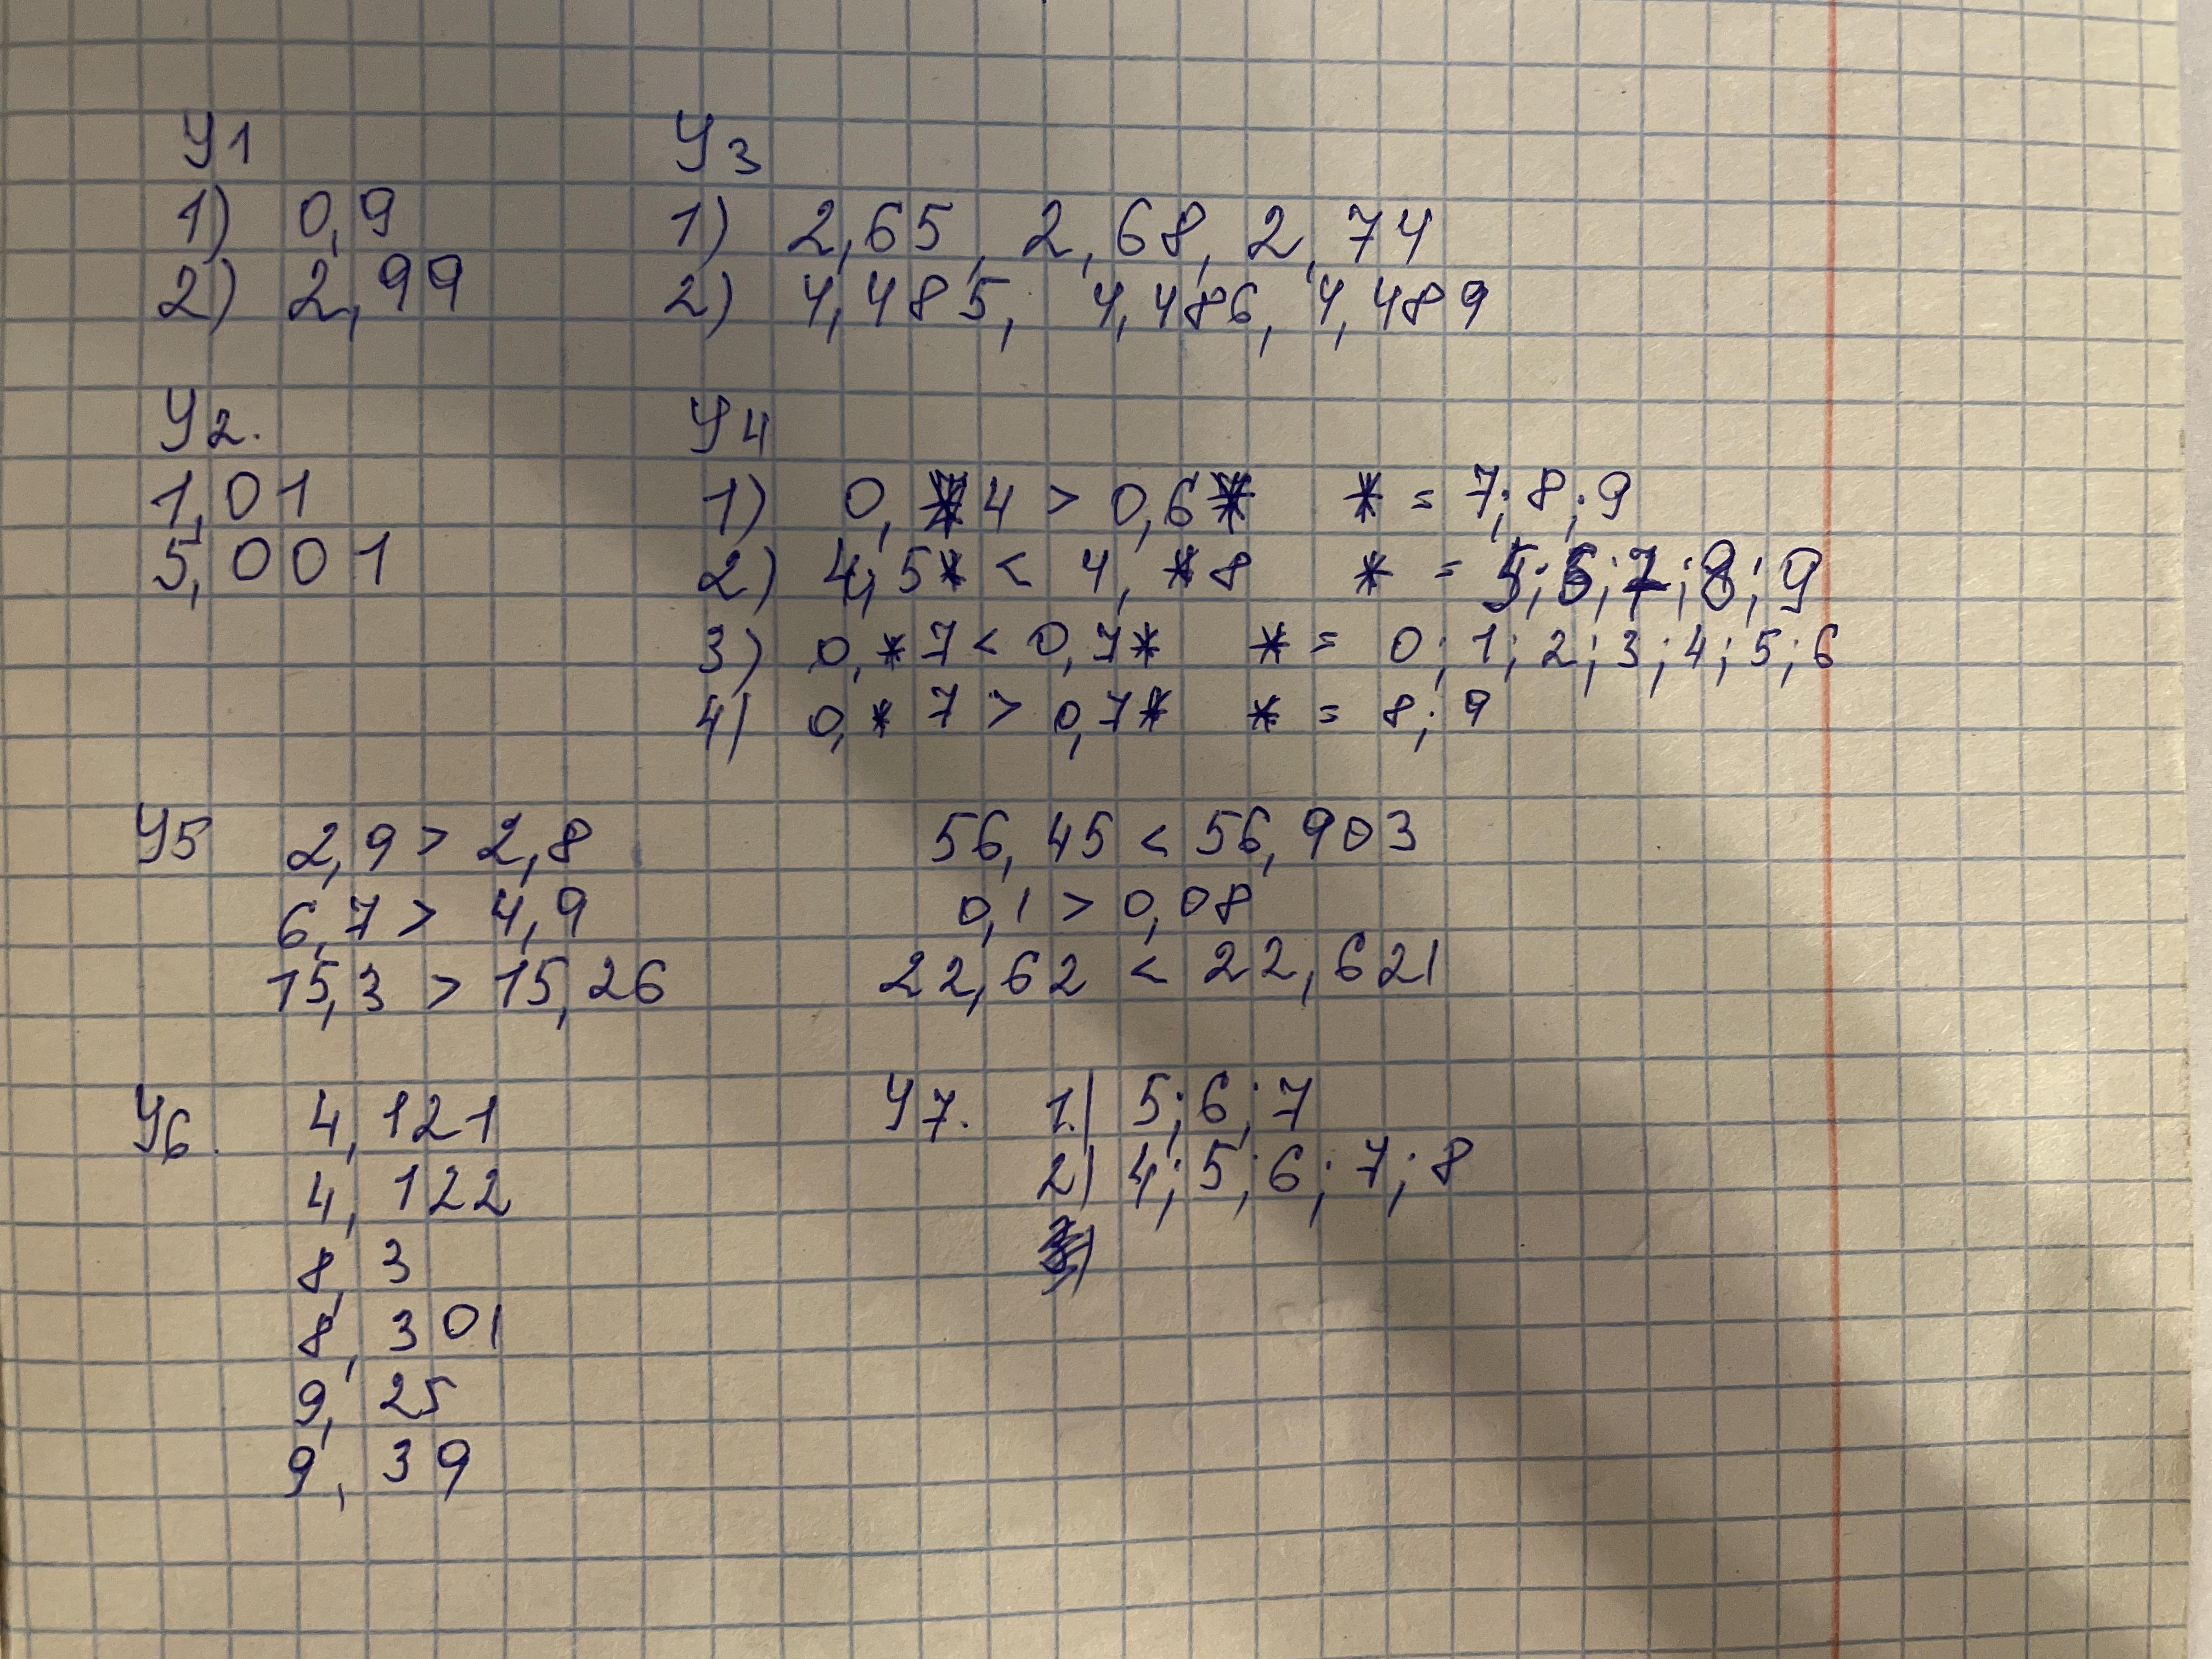 У1
1) 0,9
2) 2,99
У2.
1,01
5,001
У3
1) 2,65, 2,68, 2,74
2) 4,485, 4,486, 4,489
У4
1) 0,*4 > 0,6* * = 7; 8; 9
2) 4,5* < 4,*8 * = 5; 6; 7; 8; 9
3) 0,*7 < 0,7* * = 0; 1; 2; 3; 4; 5; 6
4) 0,*7 > 0,7* * = 8; 9
У5
2,9 > 2,8
6,7 > 4,9
15,3 > 15,26
56,45 < 56,903
0,1 > 0,08
22,62 < 22,621
У6.
4,121
4,122
8,3
8,301
9,25
9,39
У7.
1) 5; 6; 7
2) 4; 5; 6; 7; 8